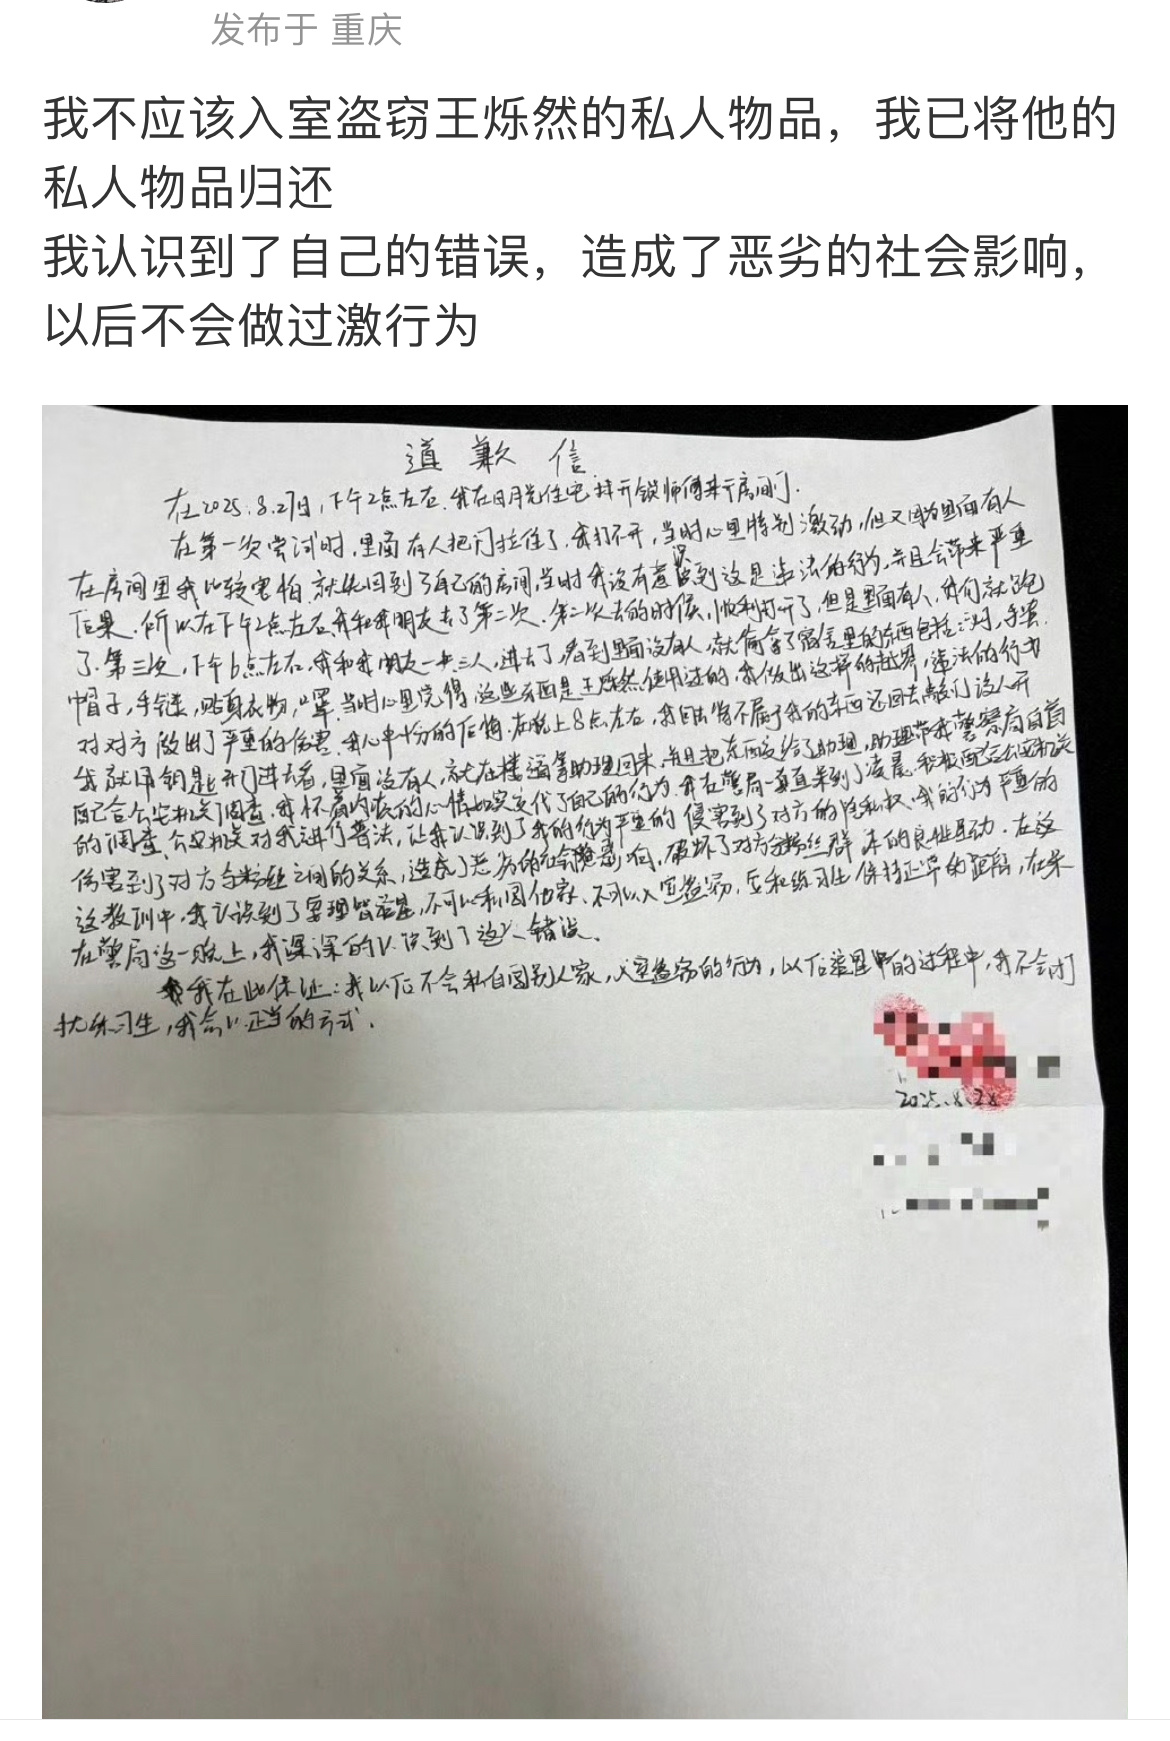 发布于 重庆
我不应该入室盗窃王烁然的私人物品，我已将他的
私人物品归还
我认识到了自己的错误，造成了恶劣的社会影响，
以后不会做过激行为
道歉信
在2025.8.27日，下午2点左右，我在日月光住宅找开锁师傅来开房间门.
在第一次尝试时，里面有人把门拉住了，我打不开，当时心里特别激动，但又因为里面有人
在房间里我比较害怕，就先回到了自己的房间，当时我没有意识到这是违法的行为，并且会带来严重
后果，所以在下午2点左右我和我朋友去了第二次，第二次去的时候，顺利打开了，但是里面有人，我们就跑
了.第三次，下午6点左右，我和我朋友一共三人，进去了，看到里面没有人，就偷拿了宿舍里的东西包括
帽子，手链，贴身衣物，口罩，当时心里觉得，这些东西是王烁然使用过的，我做出这样的越界，违法的行为
对对方做出了严重的伤害，我心中十分的后悔，在晚上8点左右，我自己将不属于我的东西还回去敲门没人开
我就用钥匙开门进去看，里面没有人，就在楼道等助理回来，并且把东西交给了助理，助理带我警察局自首
的调查，公安机关对我进行普法，让我认识到了我的行为严重的侵害到了对方的隐私权，我的行为严重的
伤害到了对方与粉丝之间的关系，造成了恶劣的社会影响，破坏了对方与粉丝群体的良性互动.在这
这教训中，我认识到了要理智追星，不可以私闯他家，不可以入室盗窃，要和练习生保持正常的距离，在呆
在警局这一晚上，我深深的认识到了这个错误.
我在此保证：我以后不会私自闯别人家，入室盗窃的行为，以后追星中的过程中，我不会打
扰练习生，我会以正当的方式.
2025.8.28